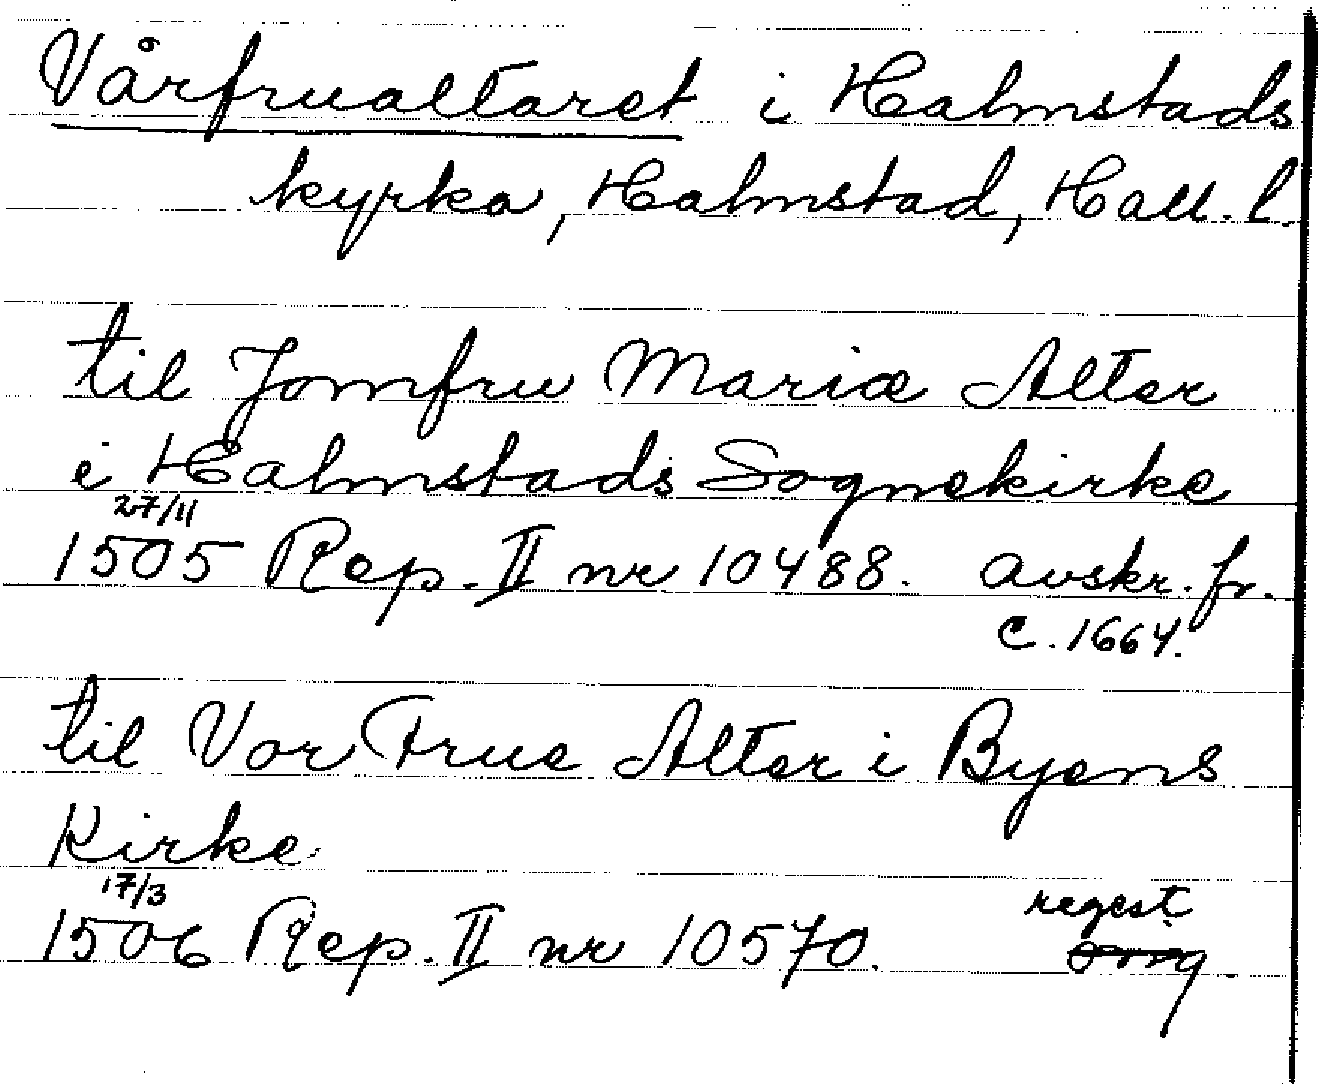 Vårfrualtaret i Halmstads
kyrka, Halmstad, Hall. l.
til Jomfru Mariæ Alter
i Halmstads Sognekirke
27/11
1505 Rep. II nr 10488. avskr. fr.
c. 1664.
til Vor Frue Alter i Byens
Kirke
17/3 regest
1506 Rep. II nr 10570. orig.